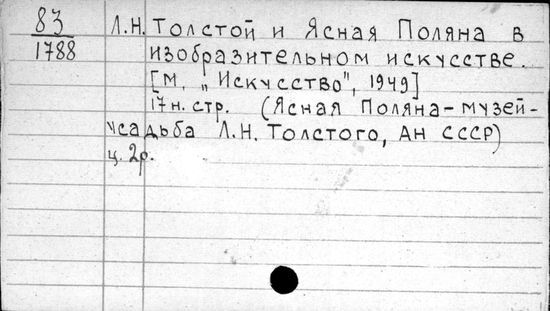 83
1788
Л.Н. Толстой и Ясная Поляна в
изобразительном искусстве.
[М, „Искусство", 1949]
17 н. стр. (Ясная Поляна-музей-
усадьба Л.Н. Толстого, АН СССР)
ц. 2р.